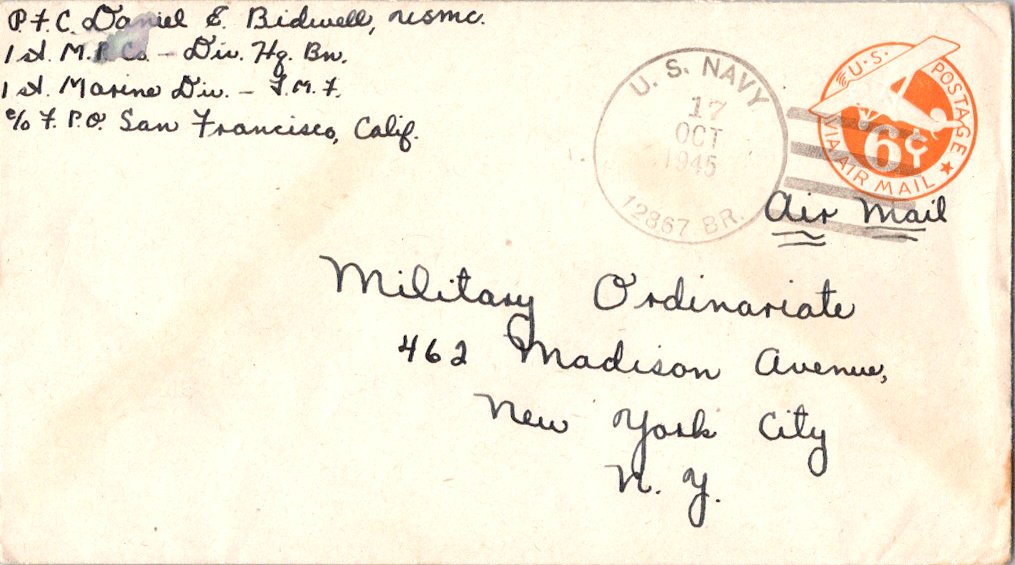 P.F.C. Daniel E. Bidwell, USMC.
1st. M.P. Co. - Div. Hq. Bn.
1st. Marine Div. - F.M.F.
c/o F.P.O. San Francisco, Calif.
U. S. NAVY
17
OCT
1945
12867 BR.
U.S. POSTAGE
6¢
VIA AIR MAIL
Air Mail
Military Ordinariate
462 Madison Avenue,
New York City
N. Y.